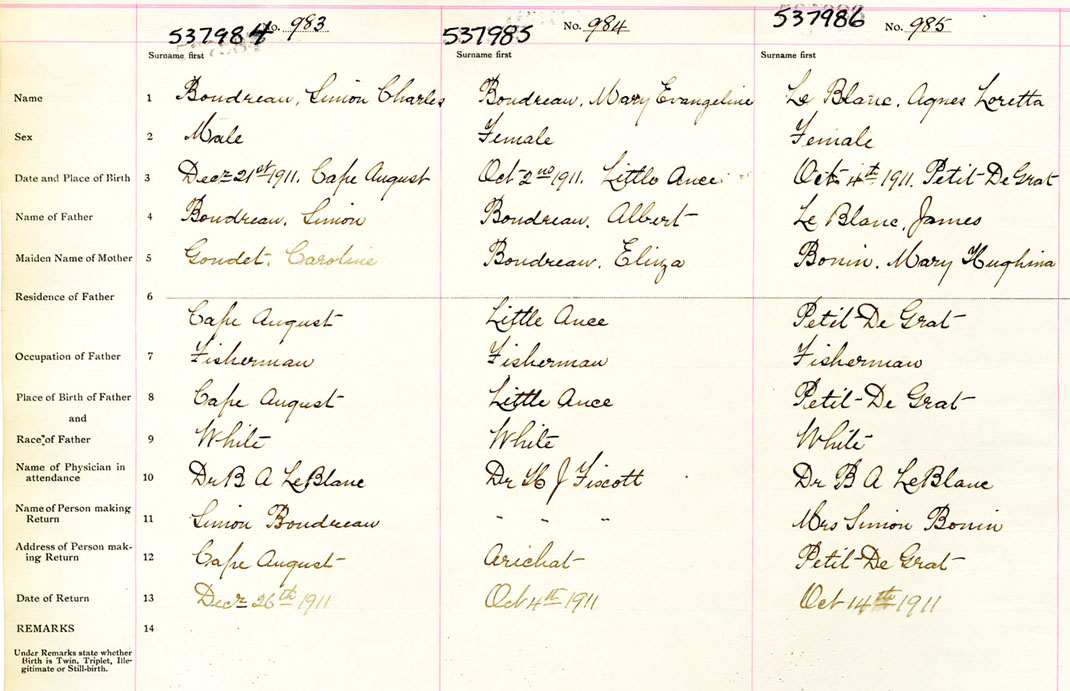 537984 No. 983 537985 No. 984 537986 No. 985
Surname first Surname first Surname first
Name 1 Boudreau, Simon Charles Boudreau, Mary Evangeline Le Blanc, Agnes Loretta
Sex 2 Male Female Female
Date and Place of Birth 3 Decr 21st 1911. Cape August Oct 2nd 1911. Little Ance Oct 4th 1911. Petit-De Grat
Name of Father 4 Boudreau, Simon Boudreau, Albert Le Blanc, James
Maiden Name of Mother 5 Goudet, Caroline Boudreau, Eliza Bonin, Mary Hughina
Residence of Father 6
Cape August Little Ance Petit-De Grat
Occupation of Father 7 Fisherman Fisherman Fisherman
Place of Birth of Father 8 Cape August Little Ance Petit-De Grat
and
Race of Father 9 White White White
Name of Physician in
attendance 10 Dr B A LeBlanc Dr H J Fiscott Dr B A LeBlanc
Name of Person making
Return 11 Simon Boudreau " " " Mrs Simon Bonin
Address of Person mak-
ing Return 12 Cape August Arichat Petit-De Grat
Date of Return 13 Decr 26th 1911 Oct 4th 1911 Oct 14th 1911
REMARKS 14
Under Remarks state whether
Birth is Twin, Triplet, Ille-
gitimate or Still-birth.